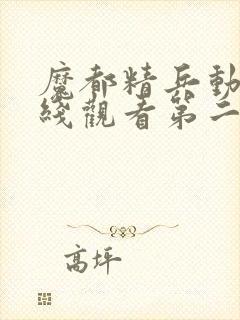 魔都精兵動
綫觀看第二
高坪